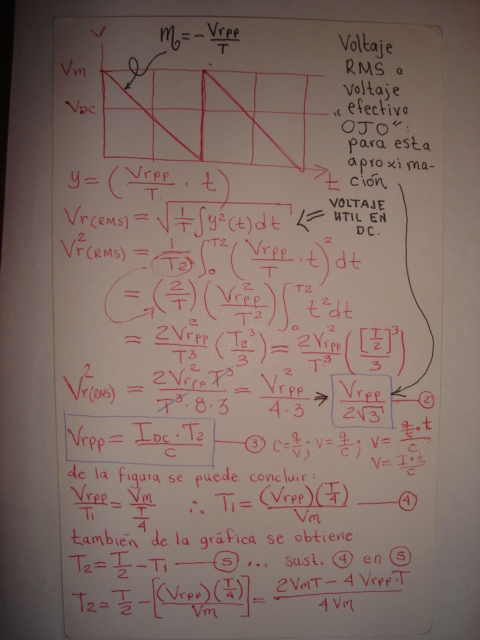 V
m = - Vrpp/T
Vm
VDC
t
Voltaje
RMS o
voltaje
"efectivo
OJO":
para esta
aproxima-
ción
y = (Vrpp/T · t)
Vr(RMS) = √(1/T ∫ y²(t) dt)
⇐ VOLTAJE
UTIL EN
DC.
Vr²(RMS) = 1/T2 ∫₀^T2 (Vrpp/T · t)² dt
= (2/T) (Vrpp²/T²) ∫₀^T2 t² dt
= 2Vrpp²/T³ (T2³/3) = 2Vrpp²/T³ ([T/2]³/3)
Vr²(RMS) = 2Vrpp² T³/T³·8·3 = Vrpp²/4·3 ⇒ Vrpp/2√3 — ②
Vrpp = IDC · T2/C — ③ C = q/V; V = q/C; V = q/t · t/C
V = I·t/C
de la figura se puede concluir:
Vrpp/T1 = Vm/(T/4) ∴ T1 = (Vrpp)(T/4)/Vm — ④
también de la gráfica se obtiene:
T2 = T/2 - T1 — ⑤ ... sust. ④ en ⑤
T2 = T/2 - [(Vrpp)(T/4)/Vm] = 2VmT - 4Vrpp·T/4Vm